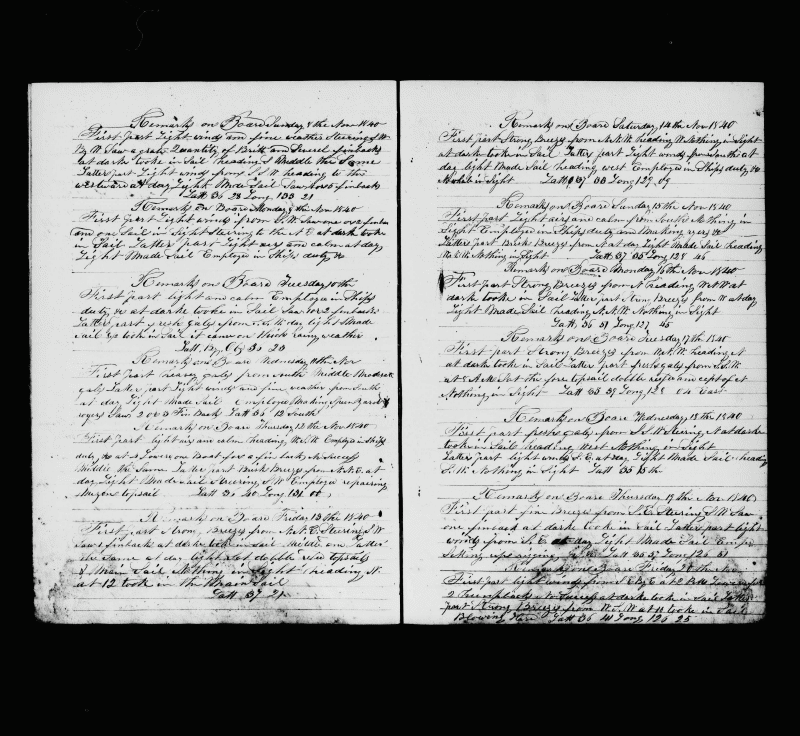 Remarks on Board Sunday 8 the Nov 1840
First part Light winds and fine weather Steering S W
By W Saw a grate Quantity of Britt and Several finbacks
at dark tooke in Sail heading S Middle the Same
Latter part Light winds from S S W heading to the
westward at day Light Made Sail Saw 4 or 5 finbacks
Latt 36 23 Long 133 21
Remarks on Board Monday 9 the Nov 1840
First part Light winds from S. W. Saw one finback
and one Sail in Sight Steering to the N E at dark took
in Sail Latter part Light airs and calm at day
Light Made Sail Employed in Ships duty &c
Remarks on Board Tuesday 10 th
First part light and calm Employed in Ships
duty, &c at dark tooke in Sail Saw 1 or 2 finbacks
Latter part fresh gales from S. E. at day light Made
sail & took in Sail thick rainy weather
Latt By
Remarks on Board Wednesday 11 the Nov
First part heavy gales from South Middle Moderate
gales Latter part Light winds and fine weather from South
at day Light Made Sail Employed Making Spun yarn &
Saw 2 or 3 Fin Back Latt 36 12 South
Remarks on Board Thursday 12 the Nov 1840
First part light airs and calm heading W S W Employed in Ships
duty &c at 2 Lower one Boat for a finback No Success
Middle the Same Latter part Brisk Breezes from N. N. E. at
day Light Made sail Steering S W Employed repairing
Mizen topsail Latt 37 20 Long 131 00
Remarks on Board Friday 13 the 1840
First part Strong Breezes from N. N. E. Steering S W
Saw 1 finback at dark took in sail Middle and Latter
the Same at day light Set doble reef topsails
& Main Sail Nothing in Sight heading W.
at 12 took in the Main Sail
Latt 37 21
Remarks on Board Saturday 14 the Nov 1840
First part Strong Breezes from N. W. heading W Nothing in Sight
at dark tooke in Sail Latter part Light winds from South at
day light Made Sail heading west Employed in Ships duty, &c
in Sight Latt 37 33 Long 129 09
Remarks on Board Sunday 15 the Nov 1840
First part Light airs and calm from South Nothing in
Sight Employed in Ships duty and Making &c
Latter part Brisk Breezes from N at day Light Made Sail heading
Nothing in Sight Latt 37 35 Long 128 46
Remarks on Board Monday 16 th Nov 1840
First part Strong Breezes from N heading W S W at
dark tooke in Sail Latter part Strong Breezes from W at day
Light Made Sail heading N. N. W Nothing in Sight
Latt 36 57 Long 127 45
Remarks on Board Tuesday 17 th Nov 1840
First part Strong Breezes from W. N. W. heading N
at dark tooke in Sail Latter part fresh gales from S. W.
at 8 A M Set the fore topsail doble reefd
Nothing in Sight Latt 35 39 Long 128 04 East
Remarks on Board Wednesday 18 th Nov 1840
First part fresh gales from S. S. W Steering at dark
tooke in Sail heading West Nothing in Sight
Latter part light winds S. E. at day Light Made Sail heading
S. W. Nothing in Sight Latt 35 South
Remarks on Board Thursday 19 th Nov 1840
First part fine Breezes from S. E Steering S W Saw
one finback at dark tooke in Sail Latter part light
winds from S. E. at day Light Made Sail Emp
Setting up rigging &c Latt 35 57 Long 126 51
Remarks on Board Friday 20 the Nov
First part light winds from S E By E at 2 P M Lowered for
2 Finnbacks No Success at dark tooke in Sail Latter
part Strong Breezes from at 11 tooke in Sail
Blowing Hard Latt 36 41 Long 126 25